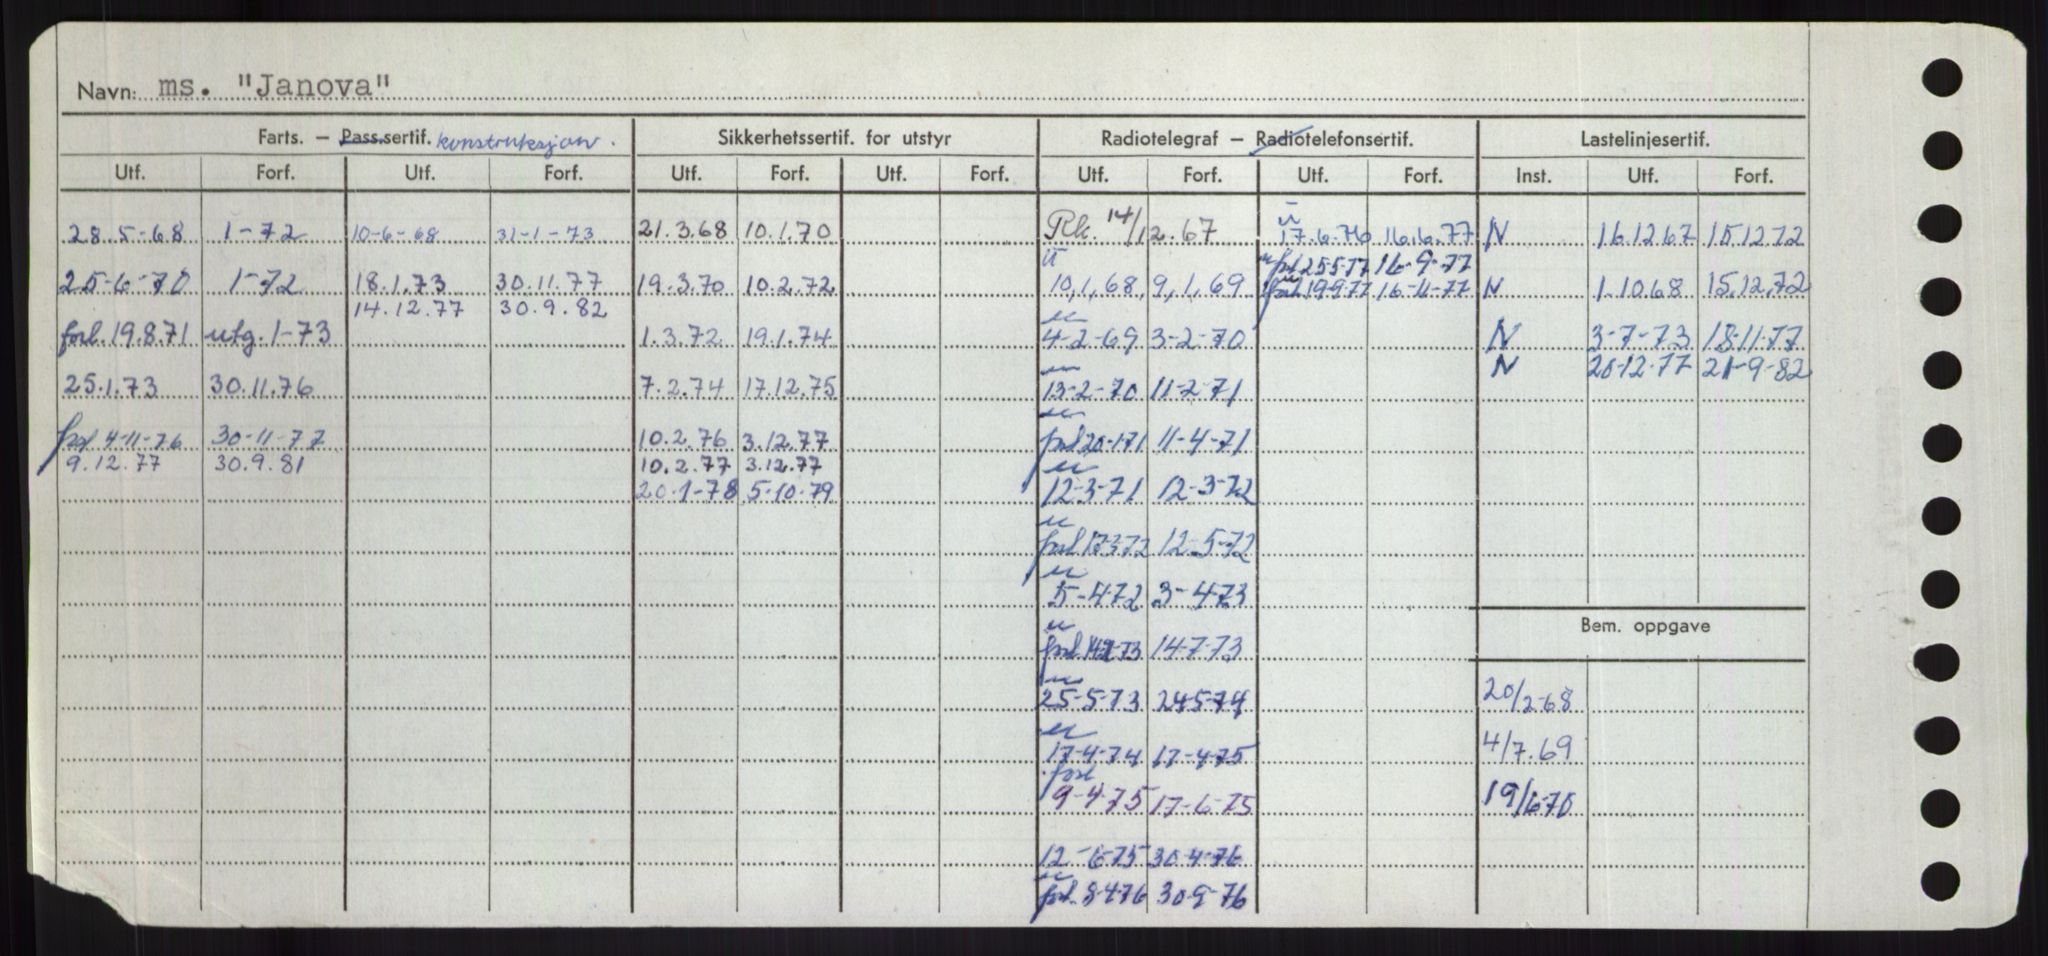 Navn: ms. "Janova"
Farts. – Pass.sertif. konstruksjon. Sikkerhetssertif. for utstyr Radiotelegraf – Radiotelefonsertif. Lastelinjesertif.
Utf. Forf. Utf. Forf. Utf. Forf. Utf. Forf. Utf. Forf. Utf. Forf. Inst. Utf. Forf.
28.5-68 1-72 10-6-68 31-1-73 21.3.68 10.1.70 Pk. 14/12.67 17.6.76 16.6.77 N 16.12 67 15.12 72
forl 25.5.77 16-9-77
25-6-70 1-72 18.1.73 30.11.77 19.3.70 10.2.72 10,1,68, 9,1,69 forl. 19.9.77 16-11-77 N 1.10.68 15.12.72
14.12.77 30.9.82
forl. 19.8.71 utg. 1-73 1.3.72 19.1.74 4-2-69 3-2-70 N 3-7-73 18.11.77
N 20-12-77 21-9-82
25.1.73 30.11.76 7.2.74 17.12.75 13-2-70 11-2-71
forl 4-11-76 30-11-77 10.2.76 3.12.77 forl 20-1-71 11-4-71
9.12.77 30.9.81 10.2.77 3.12.77
20-1-78 5-10-79 12-3-71 12-3-72
forl 17372 12-5-72
5-4-72 3-4-73
Bem. oppgave
forl. 73 14-7-73
25-5-73 24-5-74 20/2-68
17-4-74 17-4-75 4/7.69
forl
9-4-75 17-6-75 19/6-70
12-6-75 30-4-76
forl. 8-4-76 30-9-76